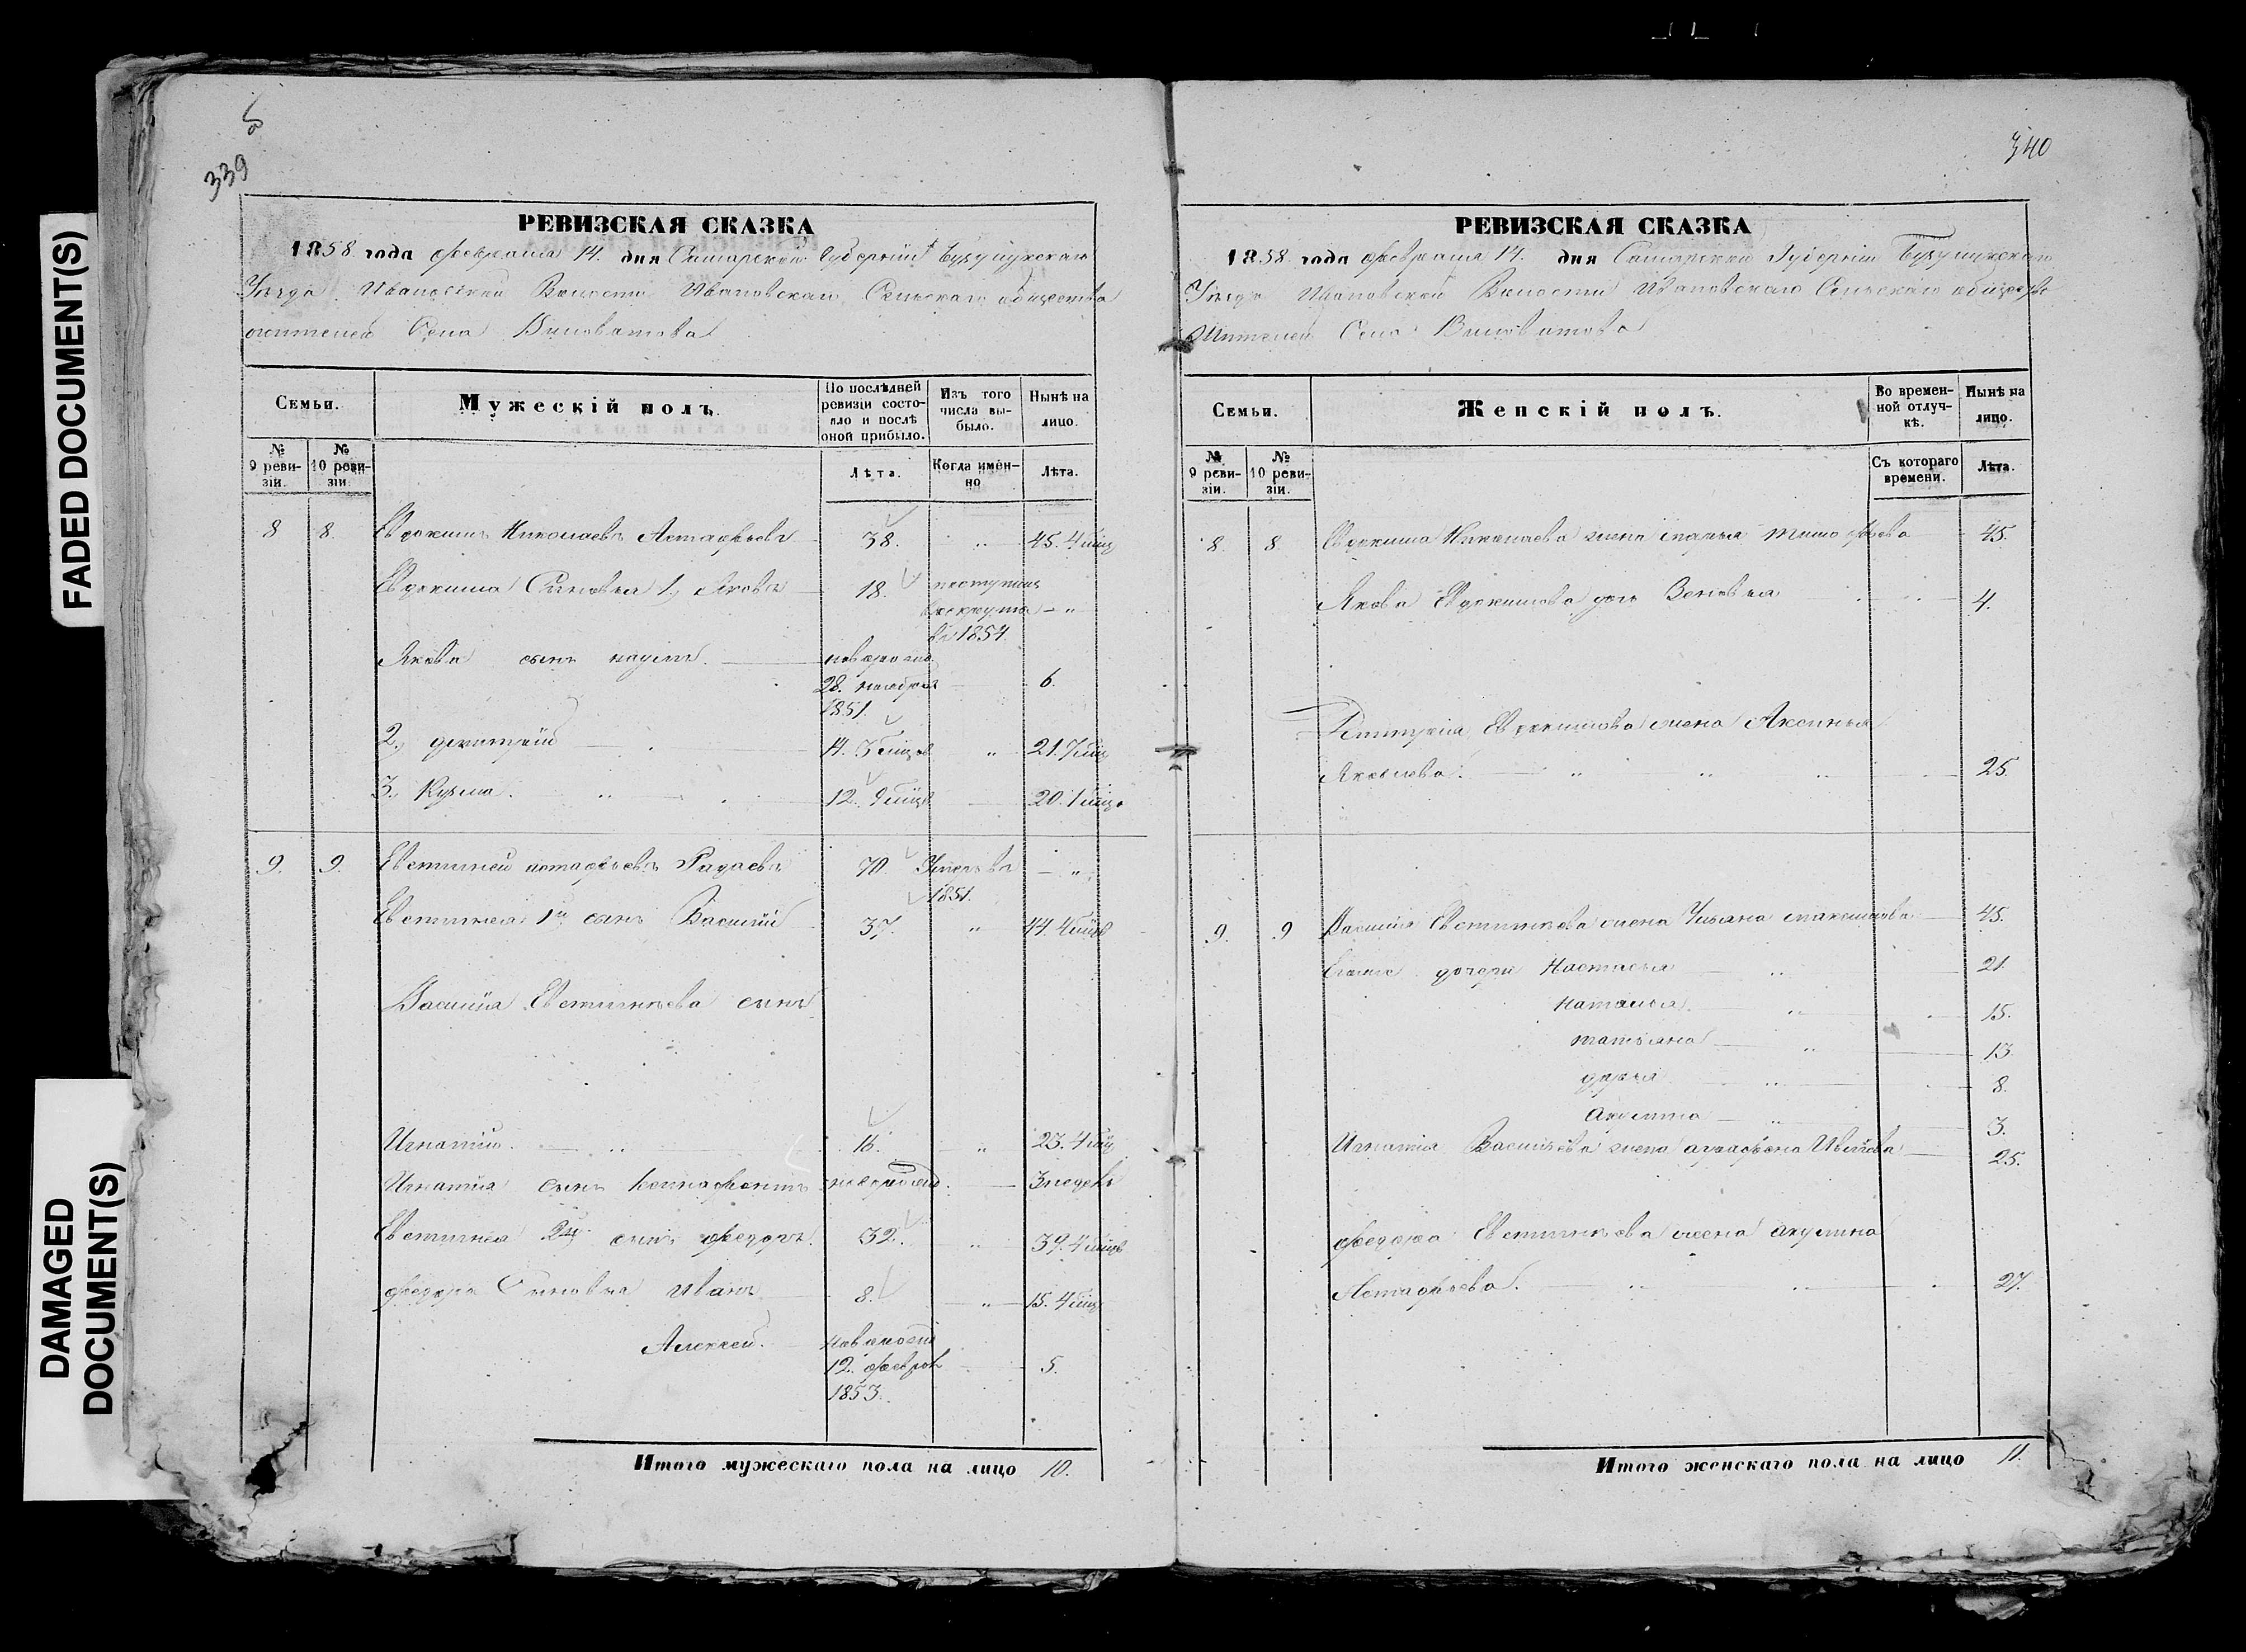 FADED DOCUMENT(S)
DAMAGED
DOCUMENT(S)
339
РЕВИЗСКАЯ СКАЗКА
1858 года февраля 14. дня Самарской Губерніи Бузулукскаго
Уѣзда Ивановской Волости Ивановскаго Сельскаго общества
жителей Села Виловатова
Семьи.
Мужескій полъ.
По послѣдней
ревизіи состо-
яло и послѣ
оной прибыло.
Изъ того
числа вы-
было.
Нынѣ на
лицо.
№
9 реви-
зіи.
№
10 реви-
зіи.
Лѣта.
Когда имен-
но
Лѣта.
8 8. Евдокимъ Николаевъ Астафьевъ 38. " 45. 4 мѣц
Евдокима Сыновья 1, Яковъ 18. поступилъ
въ рекрута — "
въ 1854
Якова сынъ наумъ. новорожд
28. ноября 6.
1851.
2, дмитрій 14. мѣцов " 21. 7 мѣц
3, Кузьма. 12. 9 мѣцв 20. 1 мѣцъ
9. 9. Евстигней астафьевъ Радаевъ 70. Умеръ въ — "
1851.
Евстигнея 1й сынъ Василій 37. " 44. 4 мѣцв
Василія Евстигнѣева сынъ
Игнатій. 16. " 23. 4 мѣц
Игнатія сынъ новорожд. 3 недель
Евстигнея 2й сынъ федоръ. 32. " 39. 4 мѣцв
федора Сыновья Иванъ 8. " 15. 4 мѣц
Алексей. новорожд
12. февраля 5.
1853.
Итого мужескаго пола на лицо 10.
340
РЕВИЗСКАЯ СКАЗКА
1858 года февраля 14. дня Самарской Губерніи Бузулукскаго
Уѣзда Ивановской Волости Ивановскаго Сельскаго общества
Жителей Села Виловатова
Семьи.
Женскій полъ.
Во времен-
ной отлуч-
кѣ.
Нынѣ на
лицо.
№
9 реви-
зіи.
№
10 реви-
зіи.
Съ котораго
времени.
Лѣта.
8. 8. Евдокима Николаева жена тимофѣева 45.
Якова Евдокимова дочь Зеновья 4.
Дмитрія Евдокимова жена Аксинья
Яковлева. 25.
9. 9 Василія Евстигнѣева жена Ульяна максимова 45.
дочери Настасья 21.
наталья 15.
татьяна 13.
дарья 8.
Акулина 3.
Игнатія Васильева жена 25.
федора Евстигнѣева жена акулина
Астафьева. 27.
Итого женскаго пола на лицо 11.